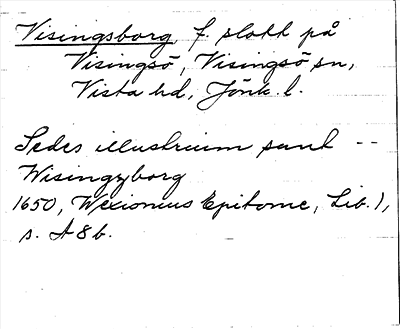 Visingsborg, f. slott på
Visingsö, Visingsö sn,
Vista hd, Jönk. l.
Sedes illustrium sunt --
Wisingzborg
1650, Wexionius Epitome, Lib. 1,
s. A 8 b.